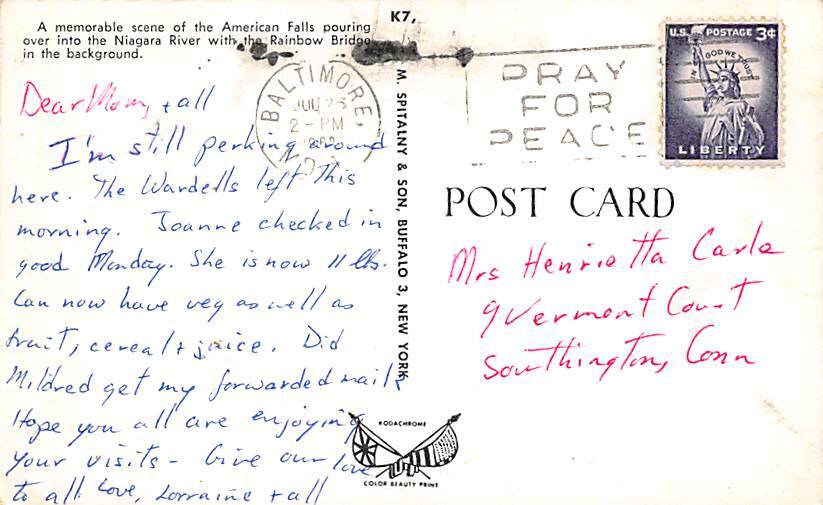 K7,
A memorable scene of the American Falls pouring
over into the Niagara River with the Rainbow Bridge
in the background.
Dear Mom, + all
I'm still perking around
here. The Wardells left This
morning. Joanne checked in
good Monday. She is now 11 lbs.
Can now have veg as well as
fruit, cereal + juice. Did
Mildred get my forwarded mail?
Hope you all are enjoying
your visits - Give our love
to all. Love, Lorraine + all
M. SPITALNY & SON, BUFFALO 3, NEW YORK
KODACHROME
COLOR BEAUTY PRINT
BALTIMORE,
JUL 25
2 - PM
MD.
PRAY
FOR
PEACE
U.S. POSTAGE 3¢
IN GOD WE TRUST
LIBERTY
POST CARD
Mrs Henrietta Carle
9 Vermont Court
Southington, Conn